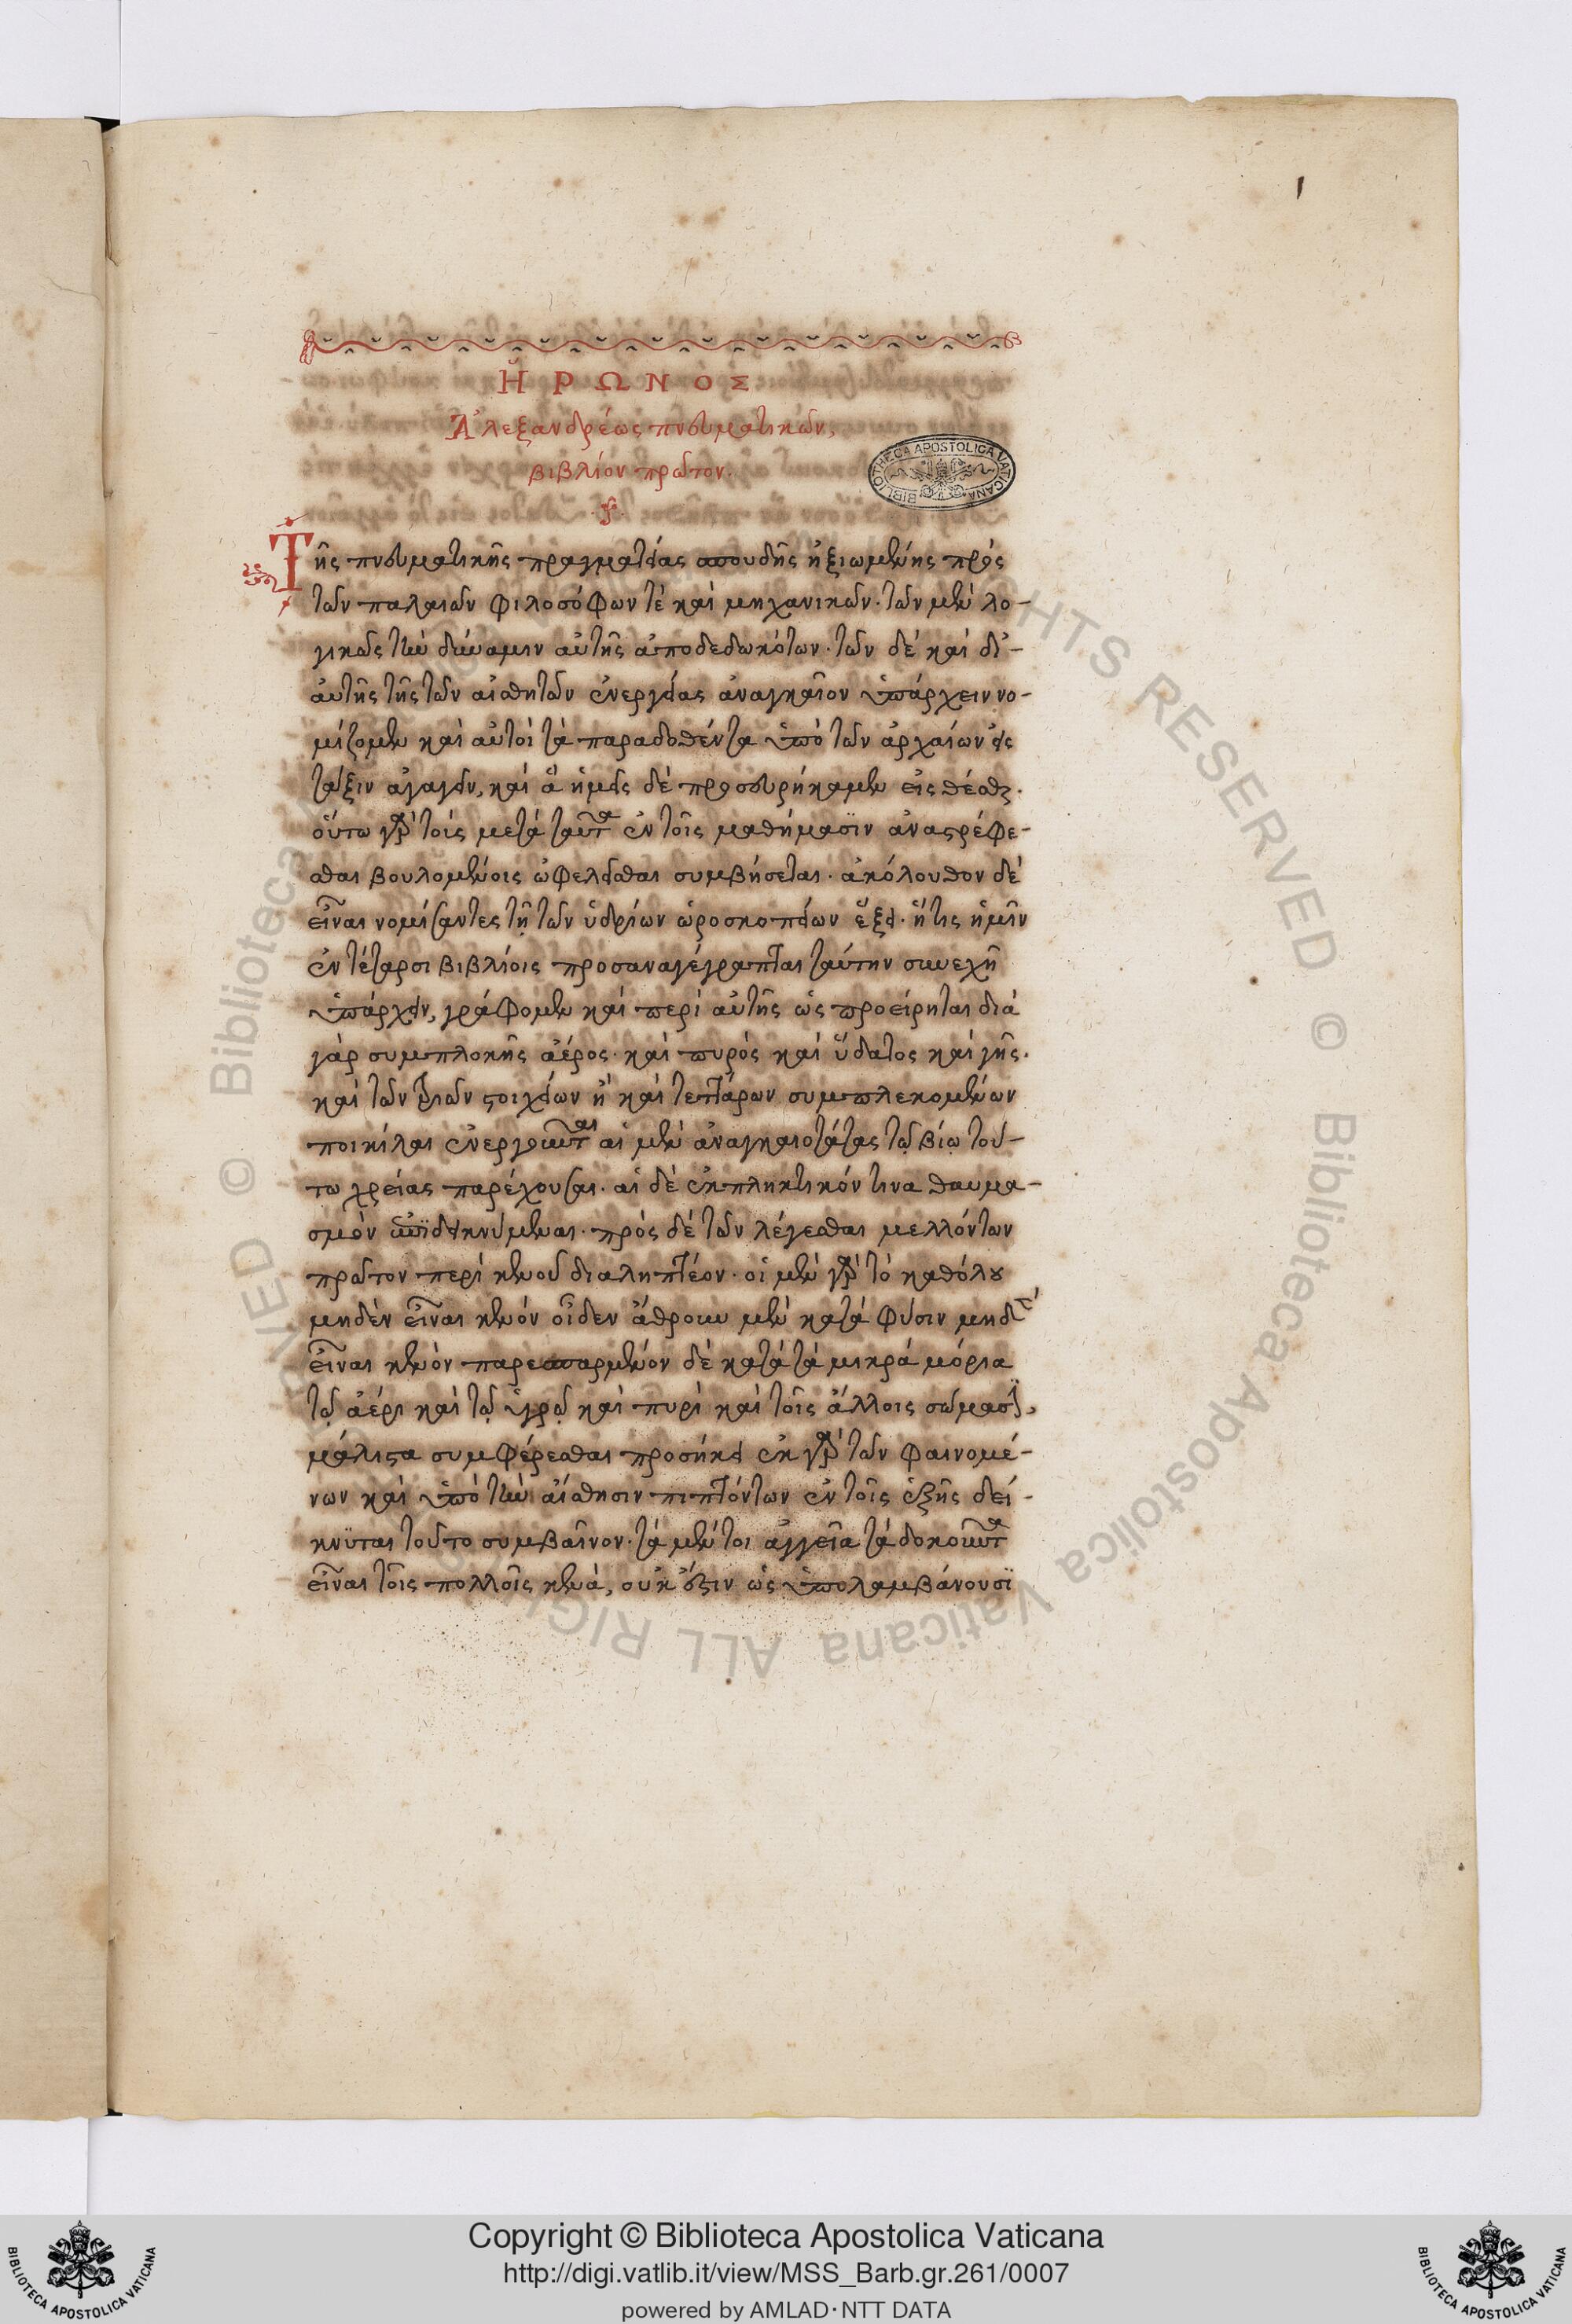 1
ἭΡΩΝΟΣ
Ἀλεξανδρέως πνευματικῶν,
βιβλίον πρῶτον.
BIBLIOTHECA APOSTOLICA VATICANA
Τῆς πνευματικῆς πραγματείας σπουδῆς ἠξιωμένης πρὸς
τῶν παλαιῶν φιλοσόφων τὲ καὶ μηχανικῶν· τῶν μὲν λο-
γικῶς τὴν δύναμιν αὐτῆς ἀποδεδωκότων· τῶν δὲ καὶ δι'-
αὐτῆς τῆς τῶν αἰσθητῶν ἐνεργείας ἀναγκαῖον ὑπάρχειν νο-
μίζομεν καὶ αὐτοὶ τὰ παραδοθέντα ὑπὸ τῶν ἀρχαίων εἰς
τάξιν ἀγαγεῖν, καὶ ἃ ἡμεῖς δὲ προσευρήκαμεν εἰς θέσθαι·
οὕτω γὰρ τοὶς μετὰ ταῦτα ἐν τοῖς μαθήμασϊν ἀναστρέφε-
σθαι βουλομένοις ὠφελεῖσθαι συμβήσεται· ἀκόλουθον δὲ
εἶναι νομίσαντες τῇ τῶν ὑδρίων ὡροσκοπείων ἕξει· ἥτις ἡμῖν
ἐν τέταρσι βιβλίοις προσαναγέγραπται ταύτην συνεχῆ
ὑπάρχειν, γράφομεν καὶ περὶ αὐτῆς ὡς προείρηται διὰ
γὰρ συμπλοκῆς ἀέρος· καὶ πυρὸς καὶ ὕδατος καὶ γῆς·
καὶ τῶν τριῶν στοιχείων ἢ καὶ τεττάρων συμπλεκομένων
ποικίλαι ἐνεργοῦνται αἱ μὲν ἀναγκαιοτάτας τῷ βίῳ τού-
τω χρείας παρέχουσαι· αἱ δὲ ἐκπληκτικόν τινα θαυμα-
σμὸν ἐπιδεικνύμεναι· πρὸς δὲ τῶν λέγεσθαι μελλόντων
πρῶτον περὶ κενοῦ διαληπτέον· οἱ μὲν γὰρ τὸ καθόλου
μηδὲν εἶναι κενόν οἶδεν ἄθρουν μὲν κατὰ φύσιν μηδὲν
εἶναι κενὸν παρεσπαρμένον δὲ κατὰ τὰ μικρὰ μόρια
τῷ ἀέρι καὶ τῷ ὑγρῷ καὶ πυρὶ καὶ τοῖς ἄλλοις σώμασϊ,
μάλιστα συμφέρεσθαι προσήκει ἐκ γὰρ τῶν φαινομέ-
νων καὶ ὑπὸ τὴν αἴσθησιν πιπτόντων ἐν τοῖς ἑξῆς δεί-
κνϋται τοῦτο συμβαῖνον· τὰ μέντοι ἀγγεῖα τὰ δοκοῦντα
εἶναι τοῖς πολλοῖς κενὰ, οὐκ ἔστιν ὡς ὑπολαμβάνουσϊ
© Biblioteca Apostolica Vaticana ALL RIGHTS RESERVED © Biblioteca Apostolica Vaticana ALL RIGHTS RESERVED
Copyright © Biblioteca Apostolica Vaticana
http://digi.vatlib.it/view/MSS_Barb.gr.261/0007
powered by AMLAD·NTT DATA
BIBLIOTECA APOSTOLICA VATICANA
BIBLIOTECA APOSTOLICA VATICANA